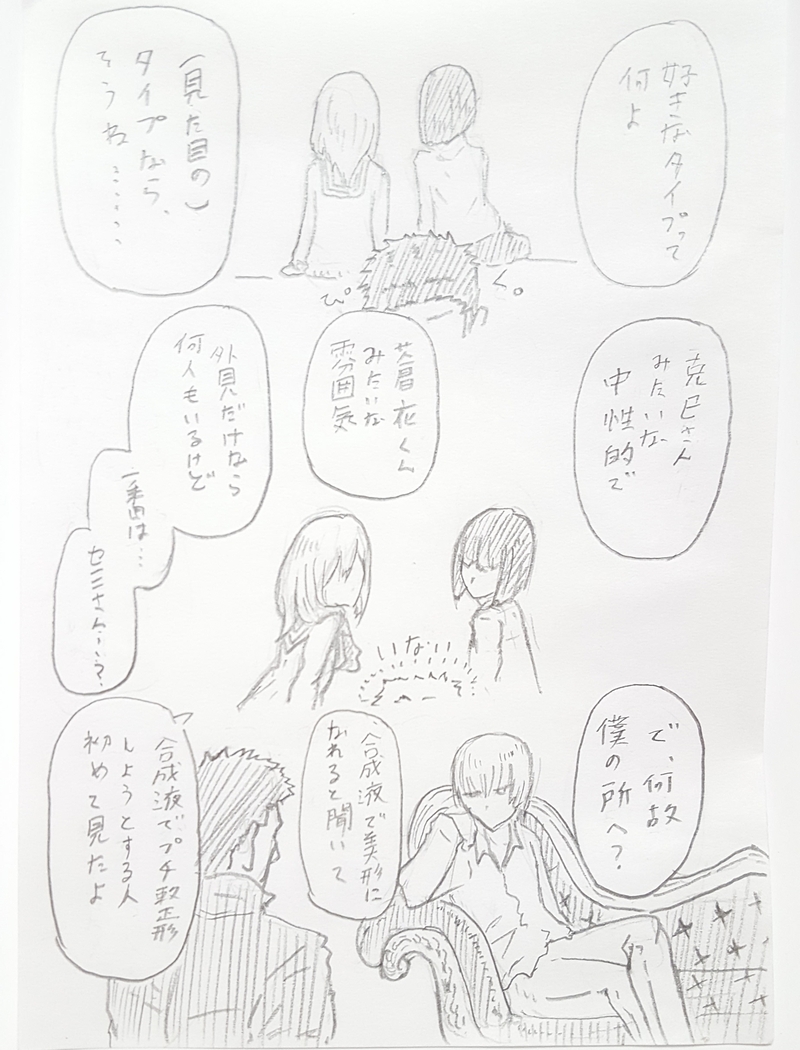 好きなタイプって
何よ
(見た目の)
タイプなら、
そうね……
ぴ。
く。
克巳さん
みたいな
中性的で
みたいな
雰囲気
外見だけなら
何人もいるけど
一番は…
セミさん…?
いない
で、何故
僕の所へ?
合成液で美形に
なれると聞いて
合成液でプチ整形
しようとする人
初めて見たよ